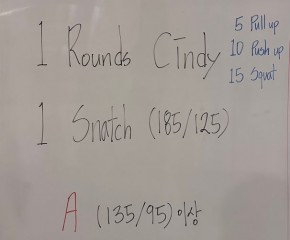 1 Rounds Cindy
5 Pull up
10 Push up
15 Squat
1 Snatch (185/125)
A (135/95) 이상